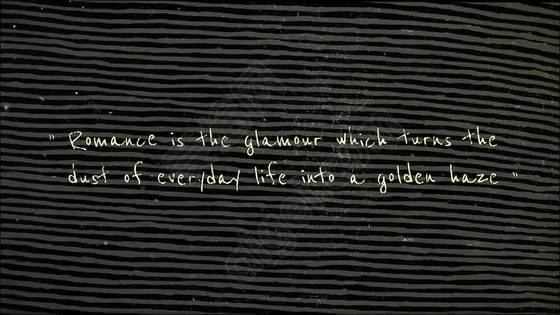 " Romance is the glamour which turns the
dust of everyday life into a golden haze "